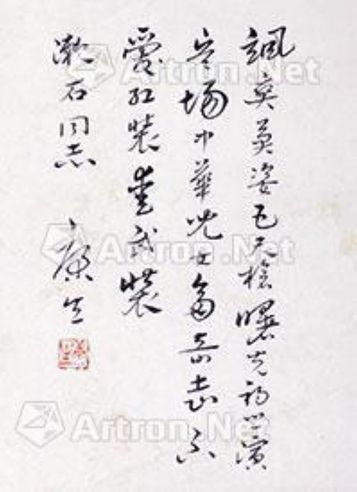 飒爽英姿五尺枪曙光初照演
兵场中华儿女多奇志不
爱红装爱武装
漱石同志
康生
Artron.Net
Artron.Net
Artron.Net
Artron.Net
Artron.Net